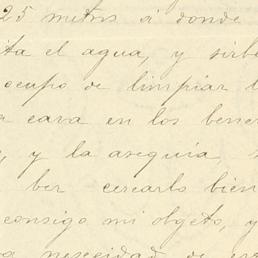 25 metros á donde
ita el agua, y sirb
ocupo de limpiar l
a cava en los berre
, y la asequia,
ber cercarlo bien
consigo mi objeto, y
nesecidad de